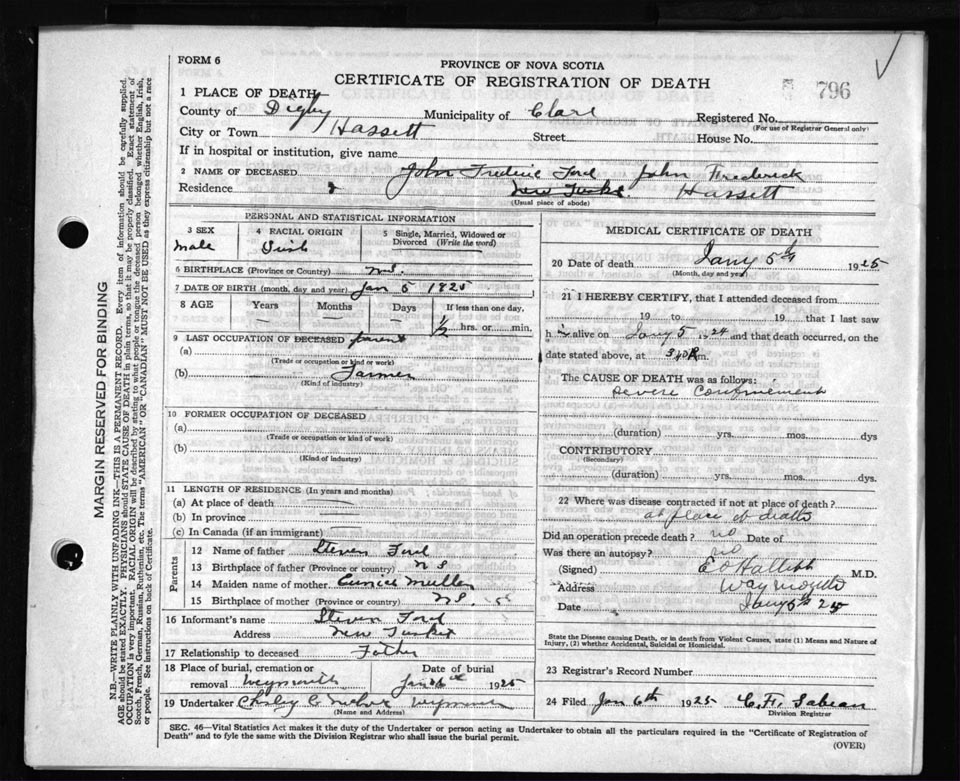 FORM 6
PROVINCE OF NOVA SCOTIA
CERTIFICATE OF REGISTRATION OF DEATH
796
1 PLACE OF DEATH
County of Digby Municipality of Clare Registered No.
(For use of Registrar General only)
City or Town Hassett Street House No.
If in hospital or institution, give name
2 NAME OF DECEASED John Frederic Ford John Frederick
Residence New Tusket Hassett
(Usual place of abode)
PERSONAL AND STATISTICAL INFORMATION
3 SEX 4 RACIAL ORIGIN 5 Single, Married, Widowed or Divorced (Write the word)
male Irish
6 BIRTHPLACE (Province or Country) N.S.
7 DATE OF BIRTH (month, day and year) Jan 5 1925
8 AGE Years Months Days If less than one day,
— — — ½ hrs. or min.
9 LAST OCCUPATION OF DECEASED parent
(a)
(Trade or occupation or kind of work)
(b) Farmer
(Kind of industry)
10 FORMER OCCUPATION OF DECEASED
(a)
(Trade or occupation or kind of work)
(b)
(Kind of industry)
11 LENGTH OF RESIDENCE (In years and months)
(a) At place of death
(b) In province
(c) In Canada (if an immigrant)
Parents
12 Name of father Steven Ford
13 Birthplace of father (Province or country) N S
14 Maiden name of mother Eunice Mullen
15 Birthplace of mother (Province or country) N S.
16 Informant's name Steven Ford
Address New Tusket
17 Relationship to deceased Father
18 Place of burial, cremation or Date of burial
removal Weymouth Jan 6th 1925
19 Undertaker Weymouth
(Name and Address)
MEDICAL CERTIFICATE OF DEATH
20 Date of death Jany 5th 1925
(Month, day and year)
21 I HEREBY CERTIFY, that I attended deceased from
19 to 19 that I last saw
h alive on Jany 5 1924 and that death occurred, on the
date stated above, at m.
The CAUSE OF DEATH was as follows:
Severe Confinement
(duration) yrs. mos. dys
CONTRIBUTORY
(Secondary)
(duration) yrs. mos. dys
22 Where was disease contracted if not at place of death?
at place of death
Did an operation precede death? no Date of
Was there an autopsy? no
(Signed) M.D.
Address Weymouth
Date Jany 5th 25
State the Disease causing Death, or in death from Violent Causes, state (1) Means and Nature of
Injury, (2) whether Accidental, Suicidal or Homicidal.
23 Registrar's Record Number
24 Filed Jan 6th 1925 C. H. Sabean
Division Registrar
SEC. 46—Vital Statistics Act makes it the duty of the Undertaker or person acting as Undertaker to obtain all the particulars required in the "Certificate of Registration of
Death" and to fyle the same with the Division Registrar who shall issue the burial permit.
(OVER)
MARGIN RESERVED FOR BINDING
N.B.—WRITE PLAINLY WITH UNFADING INK—THIS IS A PERMANENT RECORD. Every item of information should be carefully supplied.
AGE should be stated EXACTLY. PHYSICIANS should STATE CAUSE OF DEATH in plain terms, so that it may be properly classified. Exact statement of
OCCUPATION is very important. RACIAL ORIGIN will be described by stating to what people or tongue the deceased person belonged whether English, Irish,
Scotch, French, German, Russian, Ruthenian, etc. The terms "AMERICAN" OR "CANADIAN" MUST NOT BE USED as they express citizenship but not a race
or people. See instructions on back of Certificate.